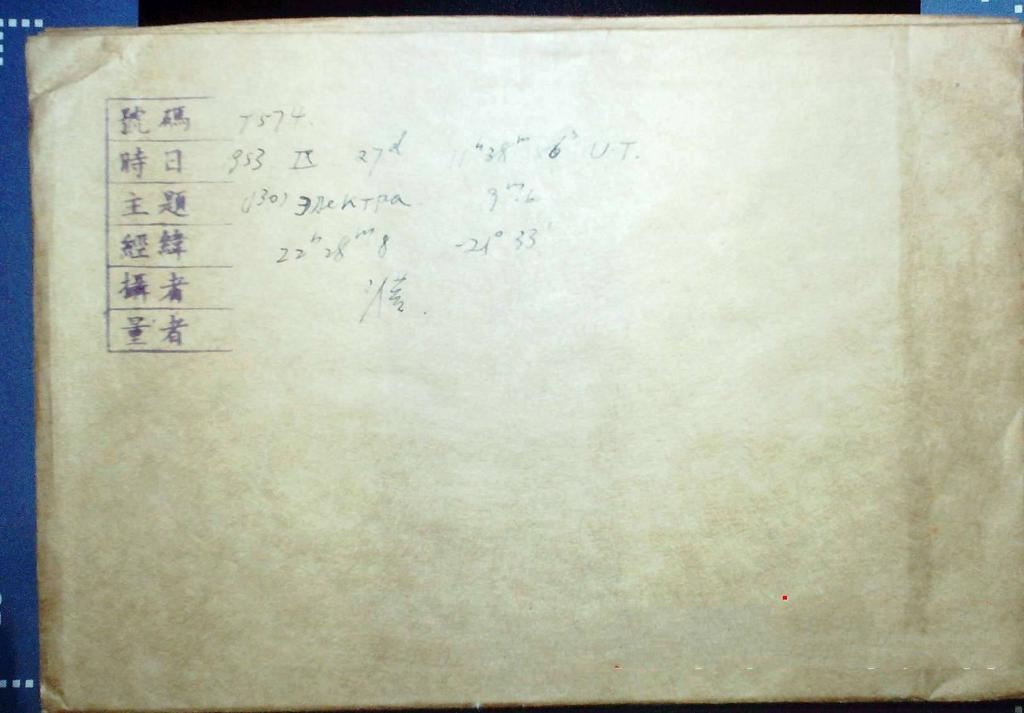 號碼 T574.
時日 953 IX 27ᵈ 11ʰ38ᵐ 6ˢ U.T.
主題 (130) Электра 9ᵐ.6
經緯 22ʰ28ᵐ8 -21°33'
攝者
量者